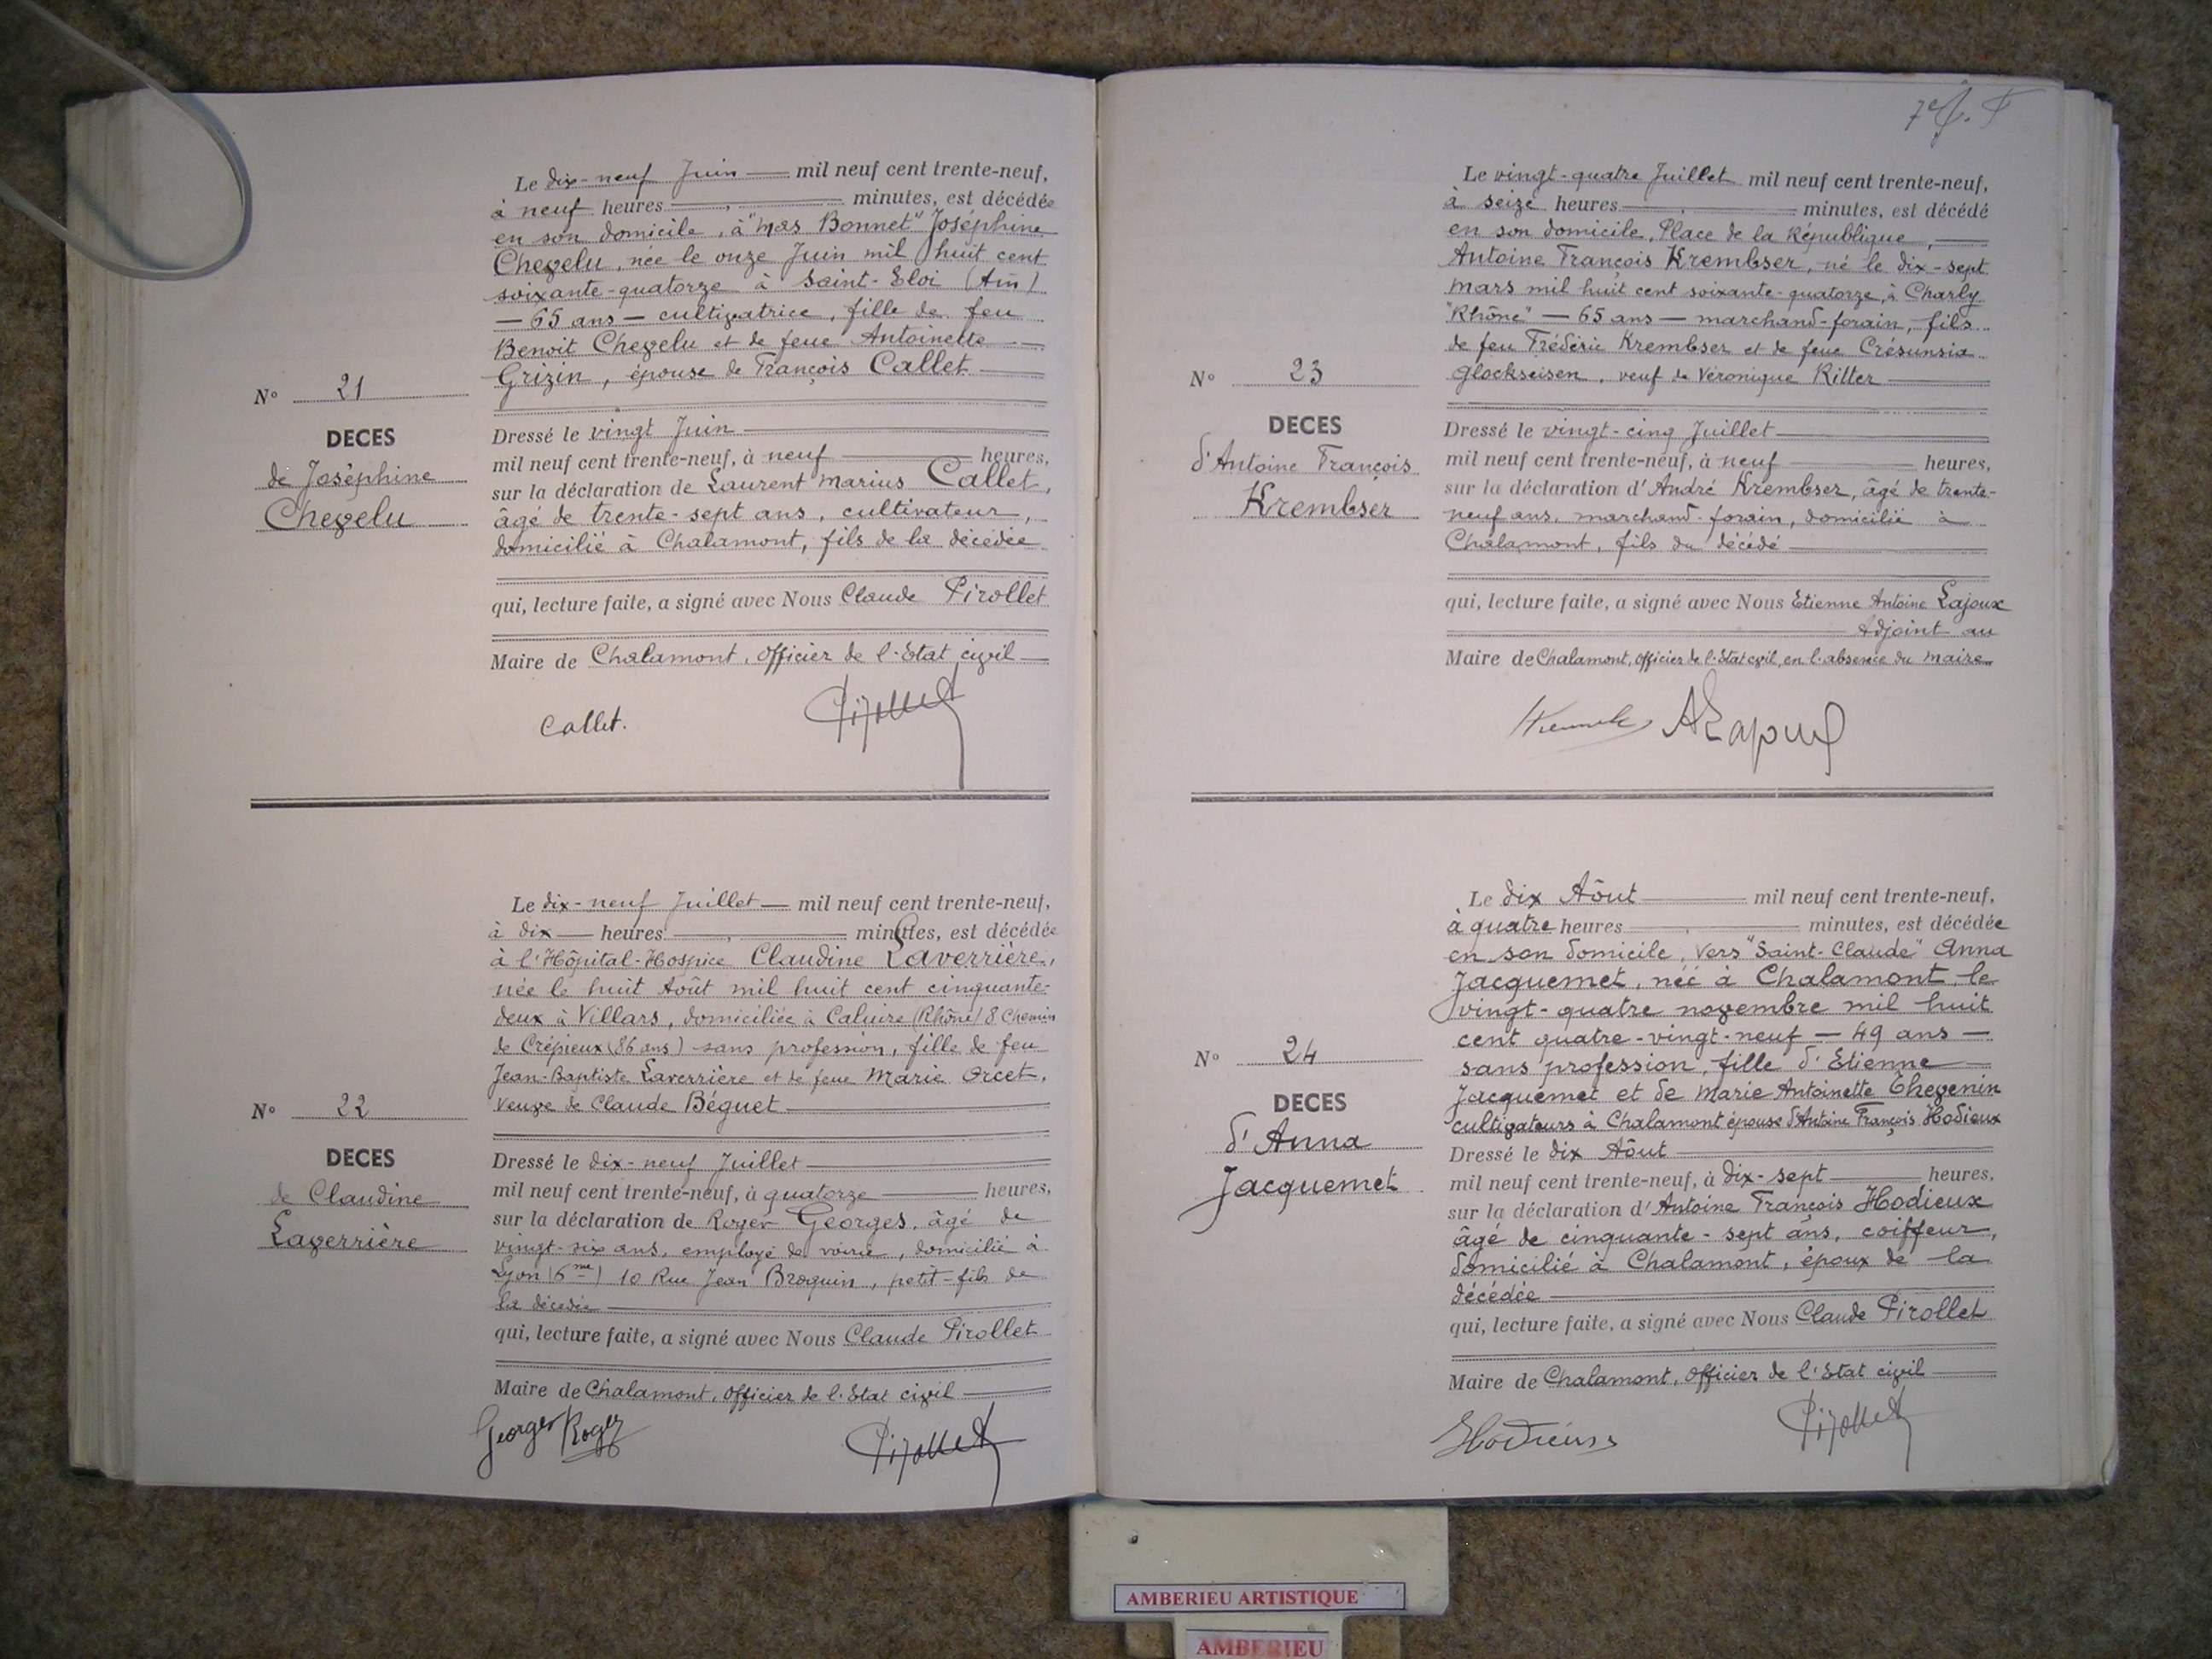 Le dix-neuf Juin mil neuf cent trente-neuf,
à neuf heures minutes, est décédée
en son domicile, à "Mas Bonnet" Joséphine
Chevelu, née le onze Juin mil huit cent
soixante-quatorze à Saint-Eloi (Ain)
— 65 ans — cultivatrice, fille de feu
Benoit Chevelu et de feue Antoinette
Grizin, épouse de François Callet
N° 21
DECES
de Joséphine
Chevelu
Dressé le vingt Juin
mil neuf cent trente-neuf, à neuf heures,
sur la déclaration de Laurent Marius Callet,
âgé de trente-sept ans, cultivateur,
domicilié à Chalamont, fils de la décédée
qui, lecture faite, a signé avec Nous Claude Pirollet
Maire de Chalamont, Officier de l'Etat civil
Callet.
Pirollet
Le dix-neuf Juillet mil neuf cent trente-neuf,
à dix heures minutes, est décédée
à l'Hôpital-Hospice Claudine Laverrière,
née le huit Août mil huit cent cinquante-
deux à Villars, domiciliée à Caluire (Rhône) 8 Chemin
de Crépieux (86 ans) sans profession, fille de feu
Jean-Baptiste Laverrière et de feue Marie Orcet,
veuve de Claude Béguet
N° 22
DECES
de Claudine
Laverrière
Dressé le dix-neuf Juillet
mil neuf cent trente-neuf, à quatorze heures,
sur la déclaration de Roger Georges, âgé de
vingt-six ans, employé de voirie, domicilié à
Lyon (6me) 10 Rue Jean Broquin, petit-fils de
la décédée
qui, lecture faite, a signé avec Nous Claude Pirollet
Maire de Chalamont, Officier de l'Etat civil
Georges Roger
Pirollet
Le vingt-quatre Juillet mil neuf cent trente-neuf,
à seize heures minutes, est décédé
en son domicile, Place de la République,
Antoine François Krembser, né le dix-sept
mars mil huit cent soixante-quatorze, à Charly
"Rhône" — 65 ans — marchand-forain, fils
de feu Frédéric Krembser et de feue Crésunsia
Glockseisen, veuf de Véronique Ritter
N° 23
DECES
d'Antoine François
Krembser
Dressé le vingt-cinq Juillet
mil neuf cent trente-neuf, à neuf heures,
sur la déclaration d'André Krembser, âgé de trente-
neuf ans, marchand-forain, domicilié à
Chalamont, fils du décédé
qui, lecture faite, a signé avec Nous Etienne Antoine Lajoux
Adjoint au
Maire de Chalamont, Officier de l'Etat civil, en l'absence du Maire
ALajoux
Le dix Aôut mil neuf cent trente-neuf,
à quatre heures minutes, est décédée
en son domicile, vers "Saint-Claude" Anna
Jacquemet, née à Chalamont, le
vingt-quatre novembre mil huit
cent quatre-vingt-neuf — 49 ans —
sans profession, fille d'Etienne
Jacquemet et de Marie Antoinette Thevenin
cultivateurs à Chalamont épouse d'Antoine François Hodieux
N° 24
DECES
d'Anna
Jacquemet
Dressé le dix Aôut
mil neuf cent trente-neuf, à dix-sept heures,
sur la déclaration d'Antoine François Hodieux
âgé de cinquante-sept ans, coiffeur,
domicilié à Chalamont, époux de la
décédée
qui, lecture faite, a signé avec Nous Claude Pirollet
Maire de Chalamont, Officier de l'Etat civil
Hodieux
Pirollet
AMBERIEU ARTISTIQUE
AMBERIEU